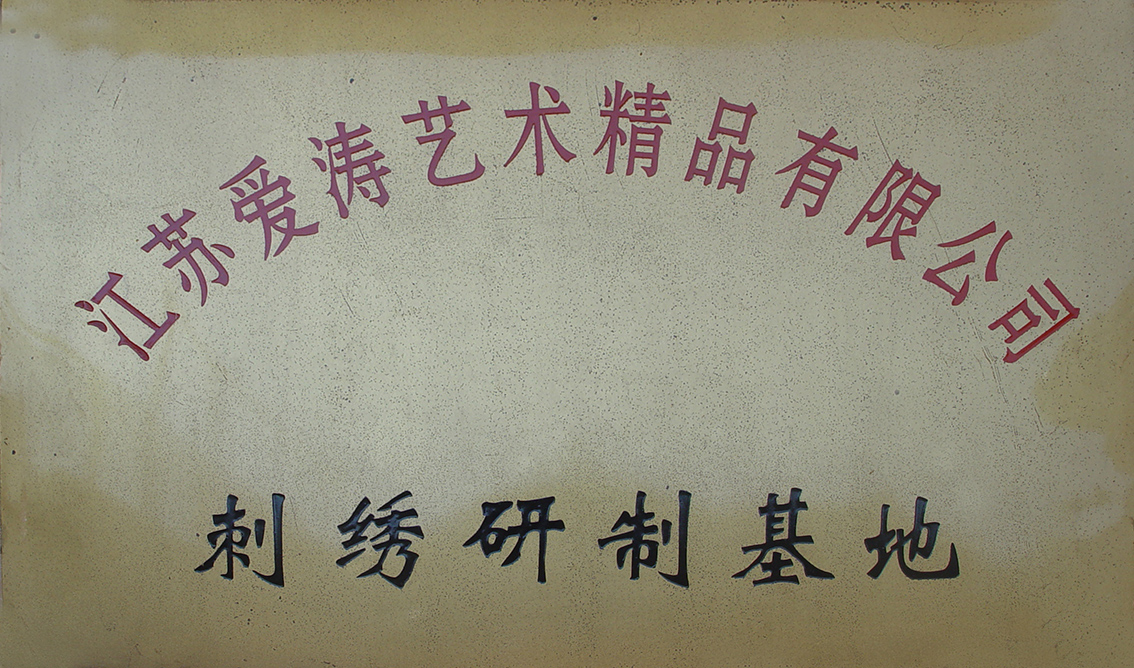 江苏爱涛艺术精品有限公司
刺绣研制基地